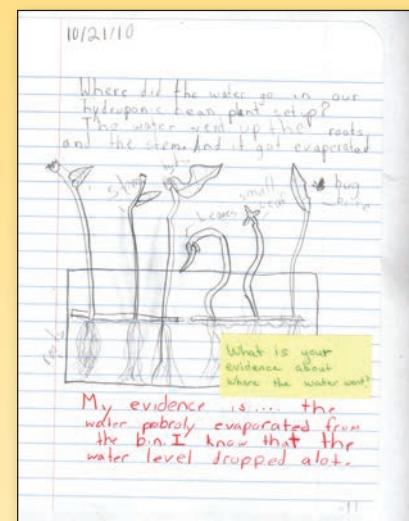 10/21/10
Where did the water go in our
hydroponic bean plant setup?
The water went up the roots,
and the stem. And it got evaporated
stem
leaves
small
leaf
bug
bite
roots
What is your
evidence about
where the water went?
My evidence is... the
water pobroly evaporated from
the bin. I know that the
water level dropped alot.
11